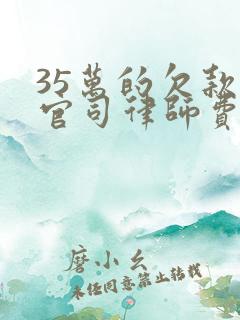 35萬的欠款
官司律師費
磨小幺
未经同意禁止转载